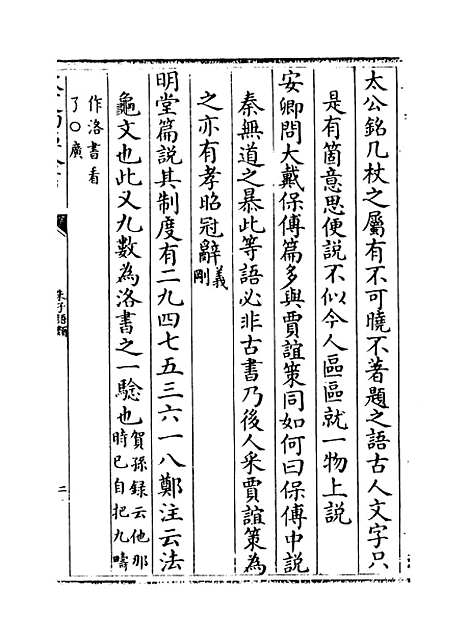 太公銘几杖之屬有不可曉不著題之語古人文字只
是有箇意思便説不似今人區區就一物上説
安卿問大戴保傅篇多與賈誼策同如何曰保傅中説
秦無道之暴此等語必非古書乃後人采賈誼策為
之亦有孝昭冠辭義剛
明堂篇説其制度有二九四七五三六一八鄭注云法
龜文也此又九數為洛書之一驗也賀孫録云他那
時已自把九疇
作洛書看
了○廣
朱子語類
二